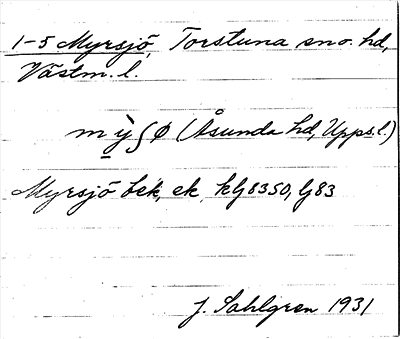 1-5 Myrsjö, Torstuna sno. hd,
Västm. l.
mỳʃø (Åsunda hd, Upps.l.)
Myrsjö bek, ek, kfj 8350, fj 83
J. Sahlgren 1931